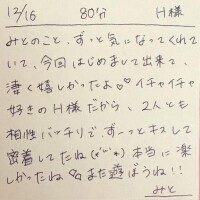 12/16 80分 H様
みとのこと、ずっと気になってくれて
いて、今回はじめまして出来て、
凄く嬉しかったよ♡イチャイチャ
好きのH様だから、2人とも
相性バッチリで、ずーっとキスして
密着してたね(*´꒳`*)本当に楽
しかったね♡また遊ぼうね!!
みと